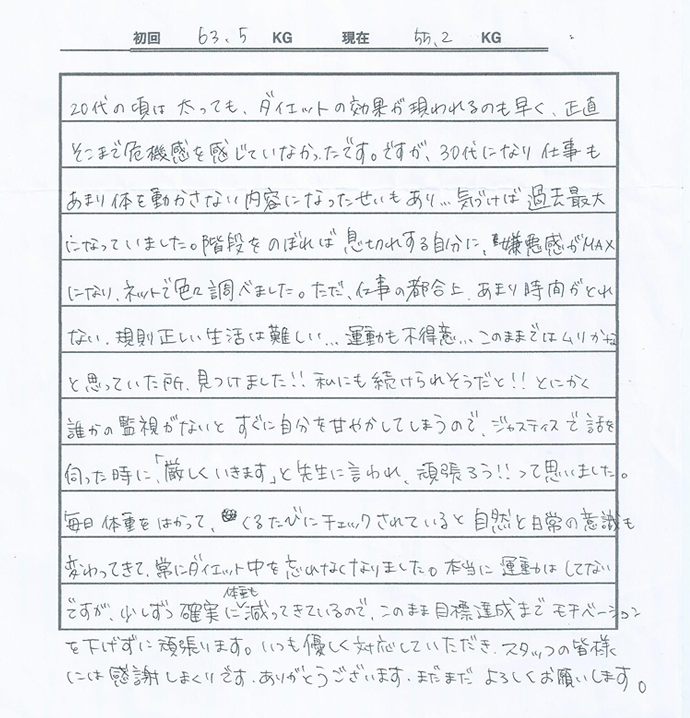 初回 63.5 KG 現在 55.2 KG
20代の頃は太っても、ダイエットの効果が現われるのも早く、正直
そこまで危機感を感じていなかったです。ですが、30代になり仕事も
あまり体を動かさない内容になったせいもあり…気づけば過去最大
になっていました。階段をのぼれば息切れする自分に、嫌悪感がMAX
になり、ネットで色々調べました。ただ、仕事の都合上、あまり時間がとれ
ない、規則正しい生活は難しい…運動も不得意…このままではムリかな
と思っていた所、見つけました!!私にも続けられそうだと!!とにかく
誰かの監視がないとすぐに自分を甘やかしてしまうので、ジャスティスで話を
伺った時に、「厳しくいきます」と先生に言われ、頑張ろう!!って思いました。
毎日体重をはかって、くるたびにチェックされていると自然と日常の意識も
変わってきて、常にダイエット中を忘れなくなりました。本当に運動はしてない
ですが、少しずつ確実に体重も減ってきているので、このまま目標達成までモチベーション
を下げずに頑張ります。いつも優しく対応していただき、スタッフの皆様
には感謝しまくりです。ありがとうございます。まだまだよろしくお願いします。